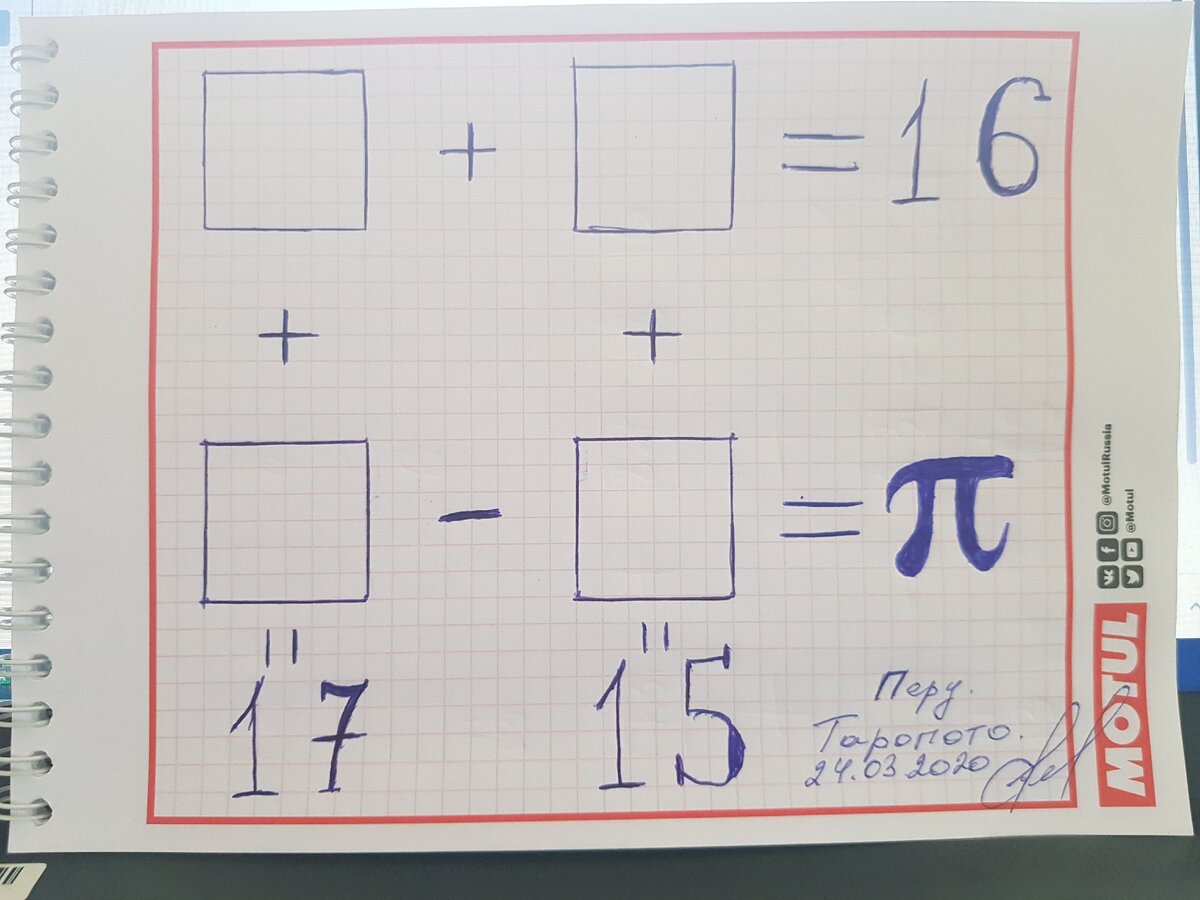 + = 16
+ +
- = π
= =
17 15
Перу.
Тарапото.
24.03.2020
@MotulRussia
@Motul
MOTUL